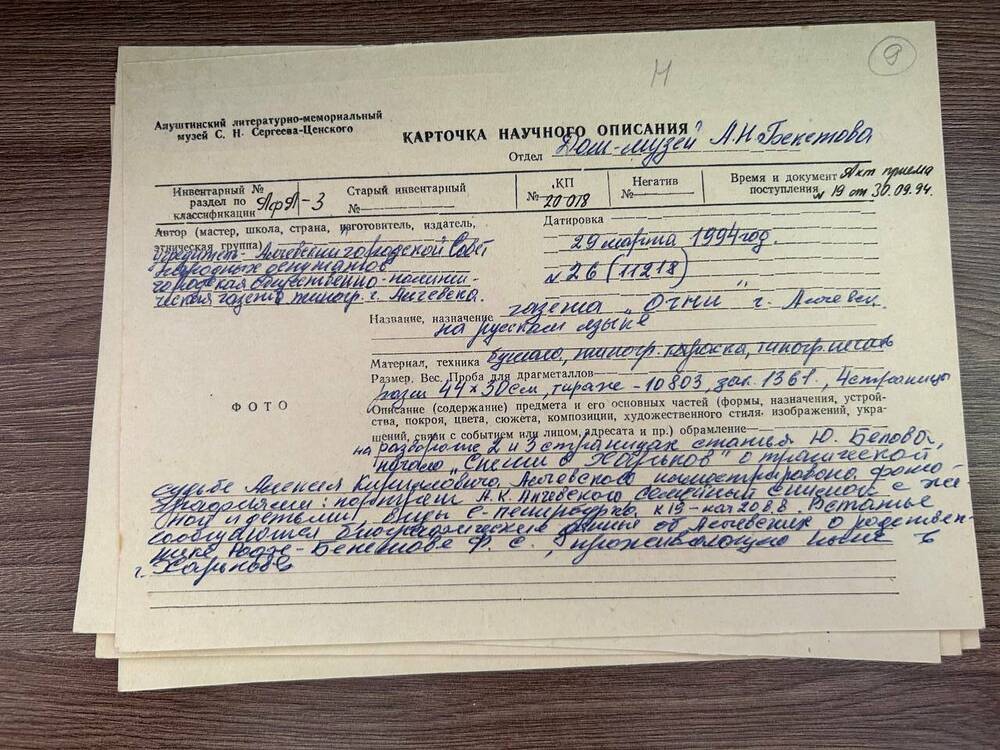 9
Н
Алуштинский литературно-мемориальный
музей С. Н. Сергеева-Ценского
КАРТОЧКА НАУЧНОГО ОПИСАНИЯ
Отдел Дом-музей А.Н Бекетова
Инвентарный №
раздел по
классификации ЯфЛ-3
Старый инвентарный
№
КП
№ 20018
Негатив
№
Время и документ Акт приема
поступления № 19 от 30.09.94.
Автор (мастер, школа, страна, изготовитель, издатель,
этническая группа)
учредитель-Алчевский городской Совет
народных депутатов
городская общественно-полити-
ческая газета типогр. г. Алчевска.
Датировка
29 марта 1994 год.
№ 26 (11218)
Название, назначение газета "Огни" г. Алчевск
на русском языке
Материал, техника бумага, типогр. краска, типогр. печать
Размер. Вес. Проба для драгметаллов
разм 44×30 см, тираж-10803, зак. 1361., 4 страницы
Описание (содержание) предмета и его основных частей (формы, назначения, устрой-
ства, покроя, цвета, сюжета, композиции, художественного стиля изображений, укра-
шений, связи с событием или лицом, адресата и пр.) обрамление
на развороте 2 и 3 страницах статья Ю. Белова,
начало о трагической
судьбе Алексея Кирилловича Алчевского иллюстрирована фото-
графиями: портрет А.К Алчевского семейный снимок с же-
ной и детьми, виды С-Петербурга. к 19-нач 20 в.в. В статье
сообщаются биографические данные об Алчевских о родствен-
нике Рофе-Бекетове Ф. С., проживающих ныне в
г. Харькове
ФОТО